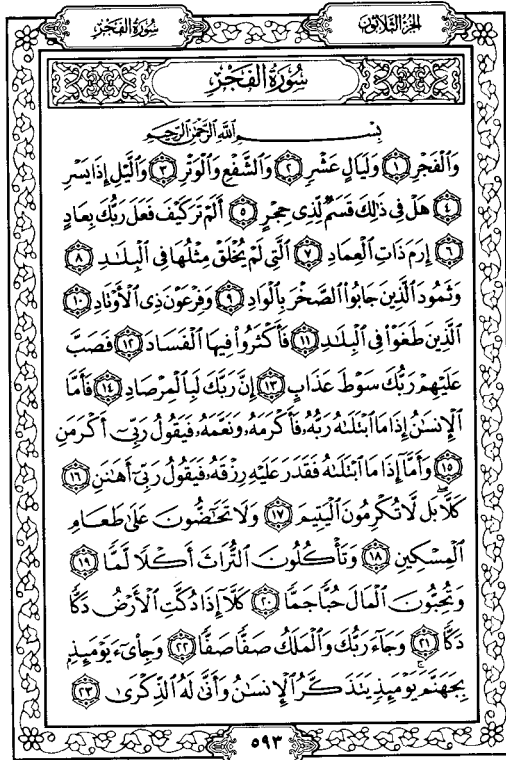 الجزء الثلاثون
سورة الفجر
سُورَةُ الفَجْرِ
بِسْمِ اللَّهِ الرَّحْمَٰنِ الرَّحِيمِ
وَالْفَجْرِ ١ وَلَيَالٍ عَشْرٍ ٢ وَالشَّفْعِ وَالْوَتْرِ ٣ وَالَّيْلِ إِذَا يَسْرِ
٤ هَلْ فِي ذَٰلِكَ قَسَمٌ لِّذِي حِجْرٍ ٥ أَلَمْ تَرَ كَيْفَ فَعَلَ رَبُّكَ بِعَادٍ
٦ إِرَمَ ذَاتِ الْعِمَادِ ٧ الَّتِي لَمْ يُخْلَقْ مِثْلُهَا فِي الْبِلَٰدِ ٨
وَثَمُودَ الَّذِينَ جَابُوا الصَّخْرَ بِالْوَادِ ٩ وَفِرْعَوْنَ ذِي الْأَوْتَادِ ١٠
الَّذِينَ طَغَوْا فِي الْبِلَٰدِ ١١ فَأَكْثَرُوا فِيهَا الْفَسَادَ ١٢ فَصَبَّ
عَلَيْهِمْ رَبُّكَ سَوْطَ عَذَابٍ ١٣ إِنَّ رَبَّكَ لَبِالْمِرْصَادِ ١٤ فَأَمَّا
الْإِنسَٰنُ إِذَا مَا ابْتَلَىٰهُ رَبُّهُ فَأَكْرَمَهُ وَنَعَّمَهُ فَيَقُولُ رَبِّي أَكْرَمَنِ
١٥ وَأَمَّا إِذَا مَا ابْتَلَىٰهُ فَقَدَرَ عَلَيْهِ رِزْقَهُ فَيَقُولُ رَبِّي أَهَٰنَنِ ١٦
كَلَّا ۖ بَل لَّا تُكْرِمُونَ الْيَتِيمَ ١٧ وَلَا تَحَٰضُّونَ عَلَىٰ طَعَامِ
الْمِسْكِينِ ١٨ وَتَأْكُلُونَ التُّرَاثَ أَكْلًا لَّمًّا ١٩
وَتُحِبُّونَ الْمَالَ حُبًّا جَمًّا ٢٠ كَلَّا إِذَا دُكَّتِ الْأَرْضُ دَكًّا
دَكًّا ٢١ وَجَاءَ رَبُّكَ وَالْمَلَكُ صَفًّا صَفًّا ٢٢ وَجِا۟ىٓءَ يَوْمَئِذٍ
بِجَهَنَّمَ ۚ يَوْمَئِذٍ يَتَذَكَّرُ الْإِنسَٰنُ وَأَنَّىٰ لَهُ الذِّكْرَىٰ ٢٣
٥٩٣